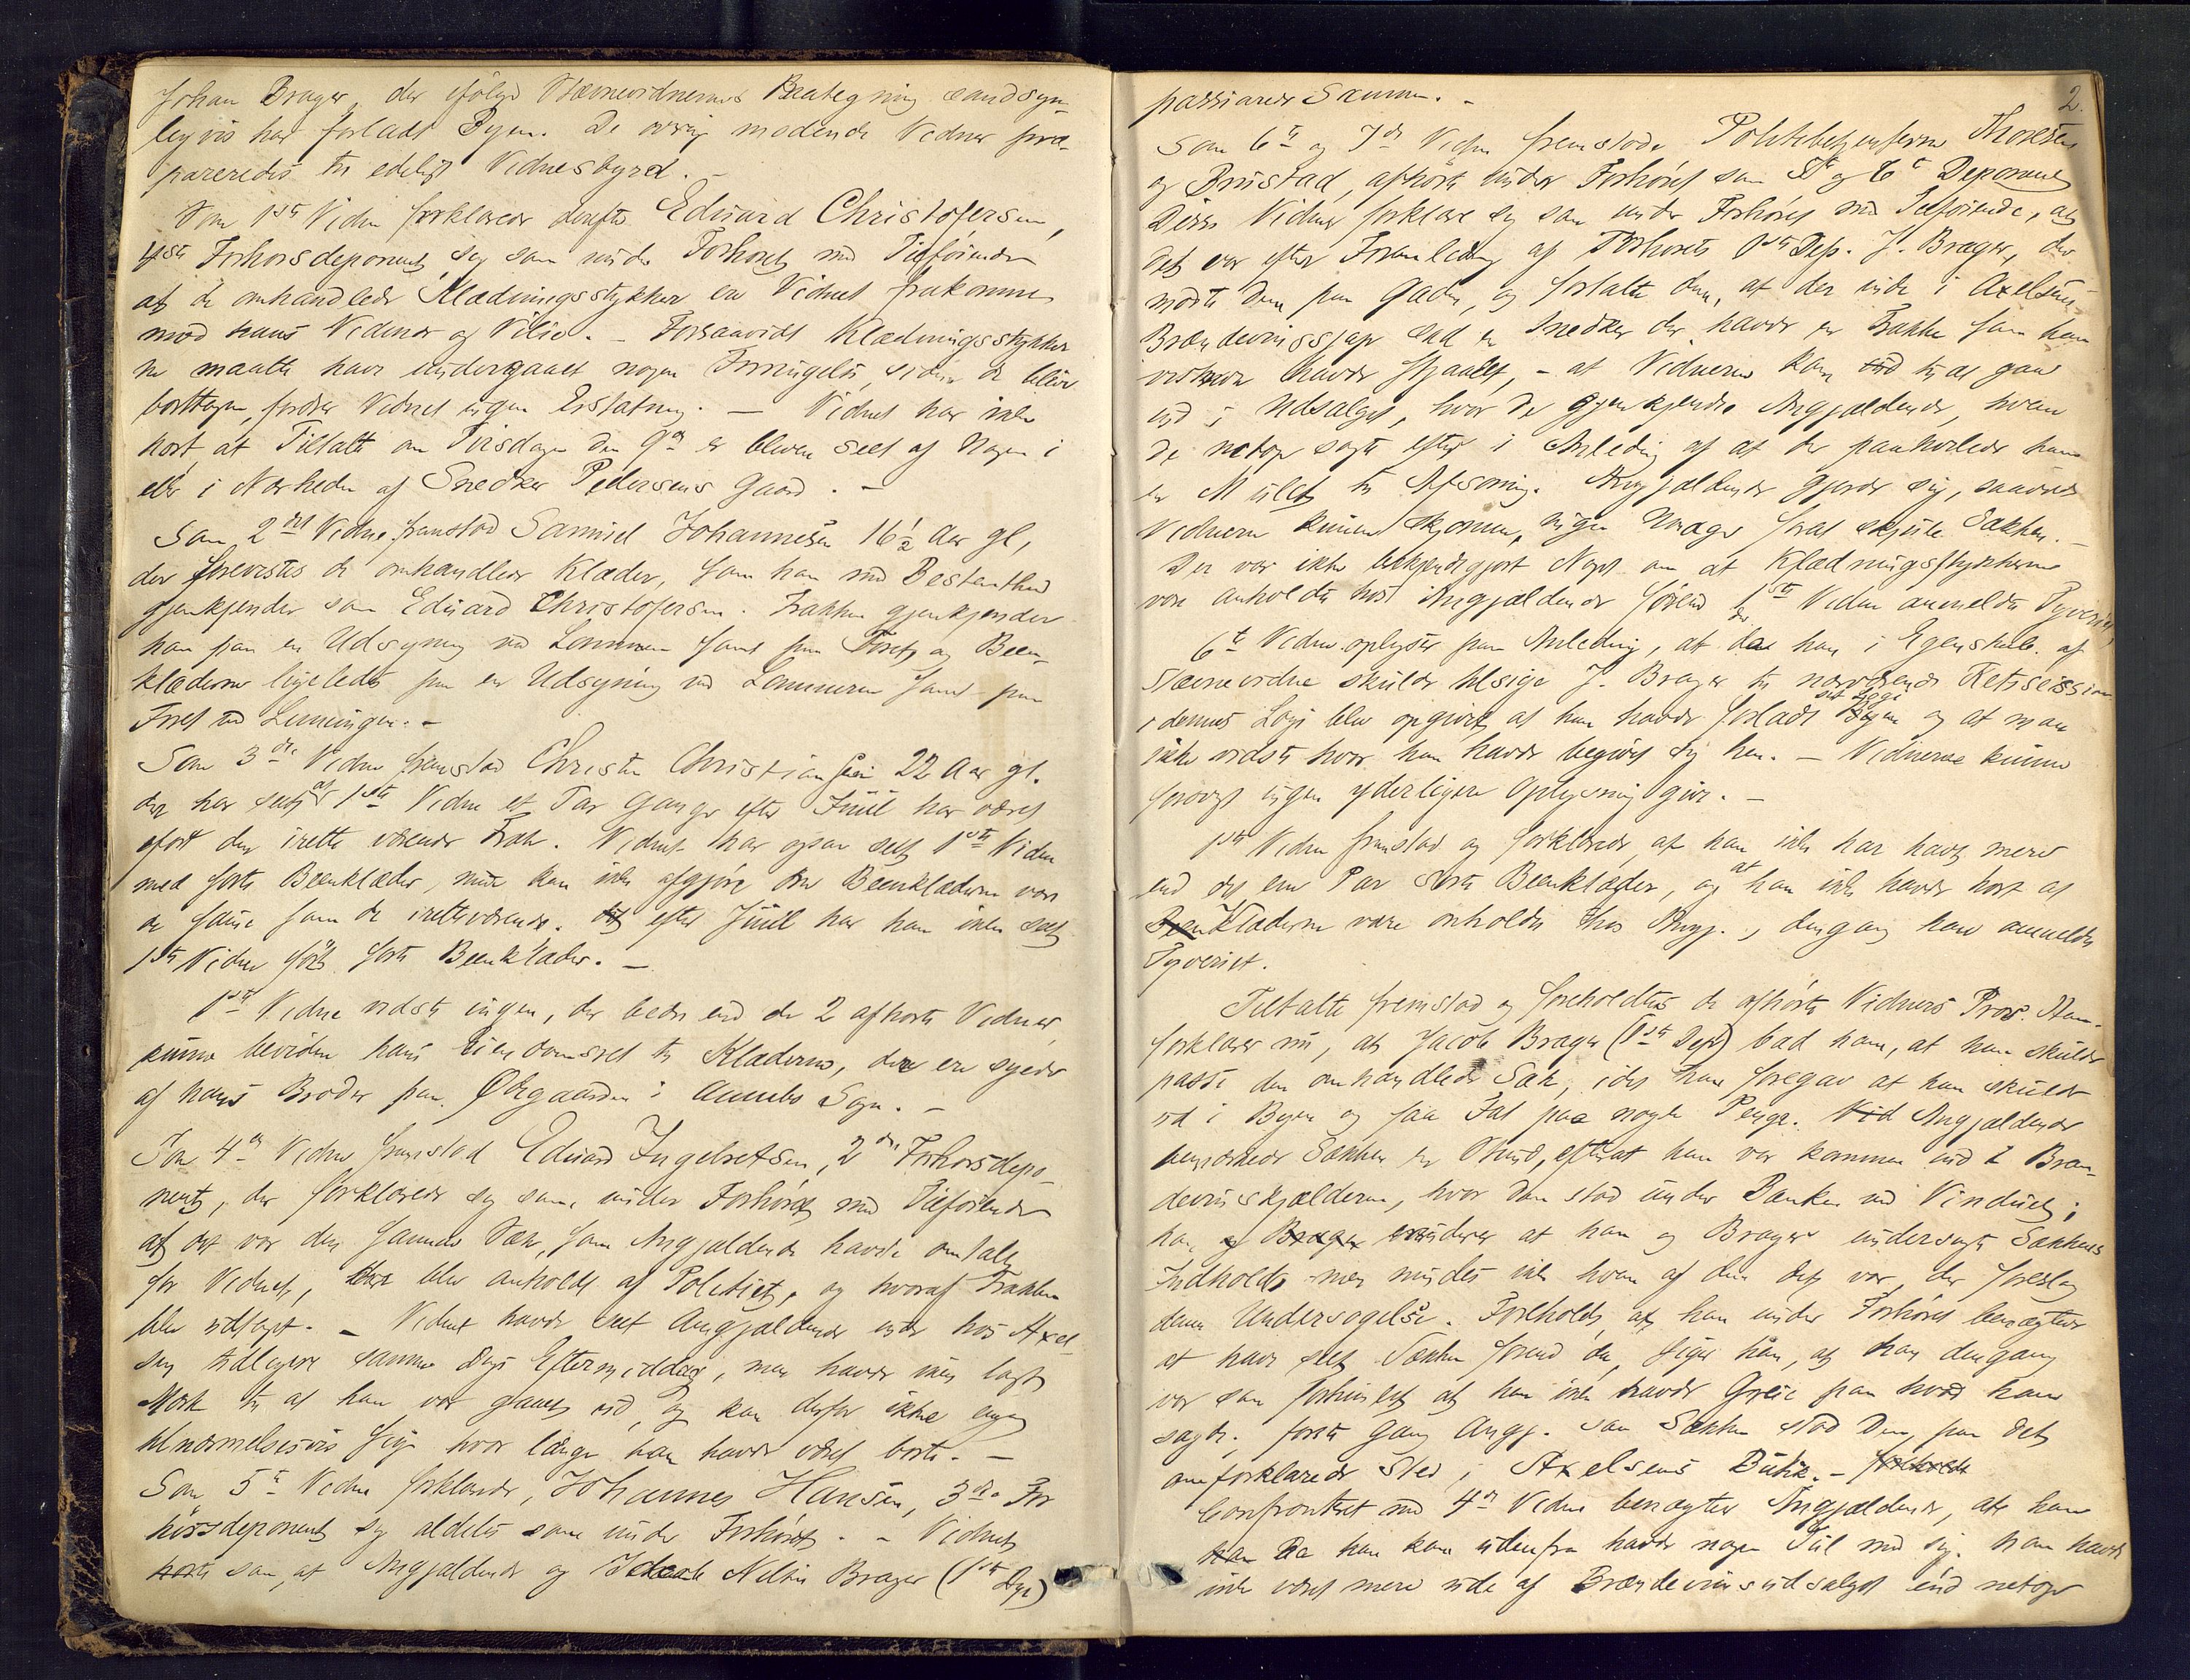 Johan Brager, der ifølge Stævnevidnernes Paategning sandsyn-
ligvis har forladt Byen. De øvrige mødende Vidner præ-
pareredes til edeligt Vidnesbyrd. -
Som 1ste Vidne forklarede derefter Eduard Christofersen,
Forhørsdeponent, sig som under Forhøret med Tilføiende
at de omhandlede Klædningsstykker er Vidnet frakommen
mod hans Vidende og Villie. - Forsaavidt Klædningsstykker
ne maatte have undergaaet nogen Forringelse, siden de bleve
borttagne, fordrer Vidnet ingen Erstatning. - Vidnet har ikke
hørt, at Tiltalte om Tirsdagen den 9de er bleven seet af Nogen i
eller i Nærheden af Snedker Pedersens Gaard. -
Som 2det Vidne fremstod Samuel Johannesen 16½ Aar gl,
der forevistes de omhandlede Klæder, som han med Bestemthed
gjenkjender som Eduard Christofersens. Frakken gjenkjender
han paa en Udsyning ved Lommen samt paa Foret og Been-
klæderne ligeledes paa en Udsyning ved Lommerne samt paa
Foret ved Linningen. -
Som 3die Vidne fremstod Christen Christiansen 22 Aar gl.
der har seet at 1ste Vidne et Par Gange efter Juul har været
iført den irette værende Frak. Vidnet har ogsaa seet 1ste Vidne
med sorte Beenklæder, men kan ikke afgjøre om Beenklæderne vare
de samme som de iretteværende. efter Juul har han ikke seet
1ste Vidne iført sorte Beenklæder. -
1ste Vidne vidste ingen, der bedre end de 2 afhørte Vidner
kunne bevidne hans Eiendomsret til Klæderne, der ere syede
af hans Broder paa i Sogn. -
Som 4de Vidne fremstod Eduard Ingebretsen, 2den Forhørsdepo-
nent, der forklarede sig som under Forhøret med Tilføiende
at det var den samme Sæk, som Angjældende havde omtalt
for Vidnet, der blev anholdt af Politiet, og hvoraf Frakken
blev udtaget. - Vidnet havde seet Angjældende inde hos Axel
sen tidligere samme Dags Eftermiddag, men havde ikke lagt
Mærke til at han var gaaet ud, og kan derfor ikke engang
tilnærmelsesvis sige hvor længe han havde været borte. -
Som 5te Vidne forklarede Johannes Hansen, 3die For
hørsdeponent sig aldeles som under Forhøret. - Vidnet
hørte saa, at Angjældende og Jacob Nilsen Brager (1ste Dep)
2.
passiarede Sammen. -
Som 6te og 7de Vidne fremstode Politibetjenterne Thoresen
og Brustad, afhørte under Forhøret som 5te og 6te Deponent
Disse Vidner forklare sig som under Forhøret med Tilføiende, at
det var efter Foranledning af Forhørets 1ste Dep. J. Brager, der
mødte dem paa Gaden, og fortalte dem, at der inde i Axelsens
Brændeviinssjap sad en Snedker der havde en Frakke som han
vistnok havde stjaalet, - at Vidnerne kom til at gaae
ind i Udsalget, hvor de gjenkjendte Angjældende, hvem
de netop søgte efter i Anledning af at der paahvilede ham
en Mulct til Afsoning. Angjældende gjorde sig, saavidt
Vidnerne kunne skjønne, ingen Umage for at skjule Sækken. -
Der var ikke bekjendtgjort Noget om at Klædningsstykkerne
vare anholdte hos Angjældende førend 1ste Vidne anmeldte Tyveriet
6te Vidne oplyste paa Anledning, at da han i Egenskab af
Stævnevidne skulde tilsige J. Brager til nærværende Retssession
i dennes Logi blev opgivet at han havde forladt Byen og at man
ikke vidste hvor han havde begivet sig hen. - Vidnerne kunne
forøvrigt ingen yderligere Oplysning give. -
1ste Vidne fremstod og forklarede, at han ikke har havt mere
end det ene Par sorte Beenklæder, og at han ikke havde hørt at
Klæderne vare anholdte hos Angj., dengang han anmeldte
Tyveriet.
Tiltalte fremstod og foreholdtes de afhørte Vidners Prov. Han
forklarer nu, at Jacob Brager (1ste Dep) bad ham, at han skulde
passe den omhandlede Sæk, idet han foregav at han skulde
ud i Byen og faa Fat paa nogle Penge. Angjældende
bemærkede Sækken en Stund, efterat han var kommen ind i Bræn-
deviinskjælderen, hvor den stod under Bænken ved Vinduet;
han erindrer at han og Brager undersøgte Sækkens
Indhold men mindes ikke hvem af dem det var, der foreslog
denne Undersøgelse. Foreholdt, at han under Forhøret benægtede
at have seet Sækken førend da, siger han, at han dengang
var saa forhuslet at han ikke havde Greie paa hvad han
sagde. første Gang Angj. saa Sækken stod den paa det
omforklarede Sted i Axelsens Butik. -
Confronteret med 4de Vidne benægter Angjældende, at han
da han kom udenfra havde nogen Tøi med sig. Han havde
ikke været mere ude af Brændeviinsudsalget end netop